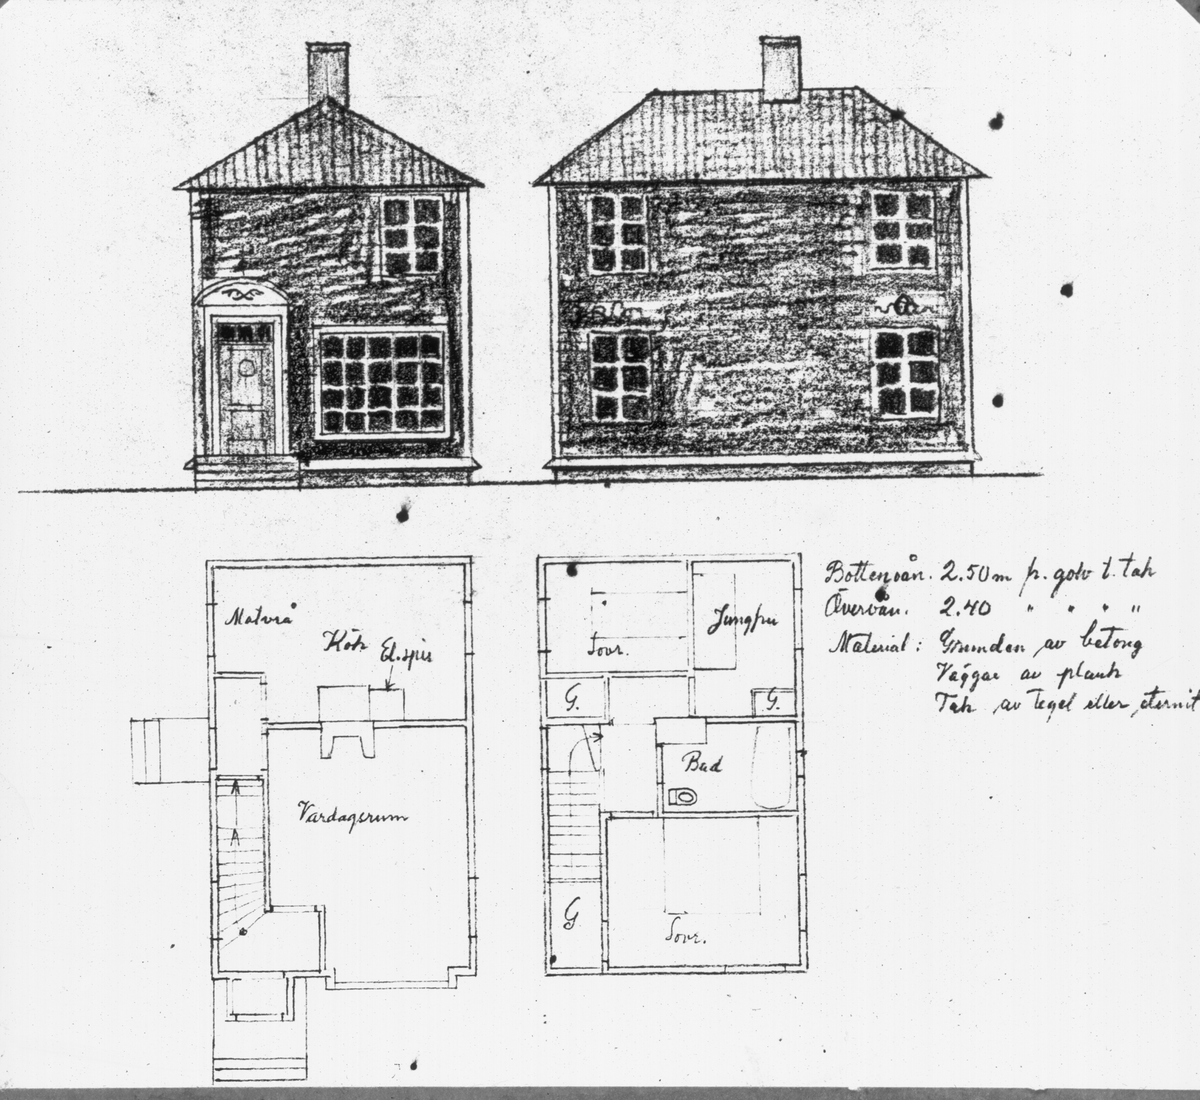 Bottenvån. 2.50m fr. golv t. tak
Övervån. 2.40 " " " "
Material: Grunden av betong
Väggar av plank
Tak av Tegel eller eternit
Matvrå
Kök
El.spis
Vardagsrum
Sovr.
Jungfru
G.
G.
Bad
G
Sovr.